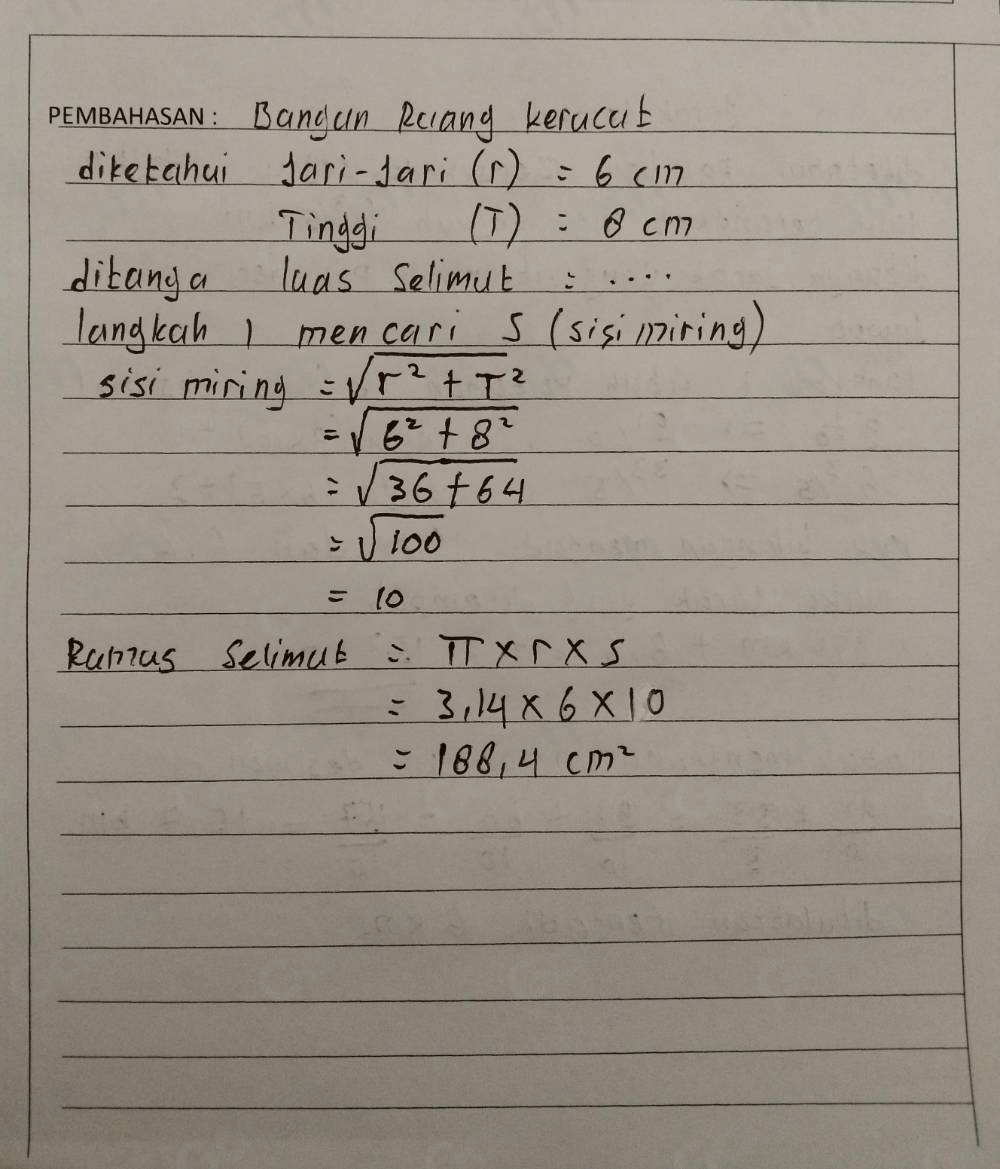 PEMBAHASAN : Bangun Ruang kerucut
diketahui Jari-Jari (r) = 6 cm
Tinggi (T) = 8 cm
ditanya luas Selimut = ....
langkah 1 mencari S (sisi miring)
sisi miring = √r² + T²
= √6² + 8²
= √36 + 64
= √100
= 10
Rumus Selimut = π × r × s
= 3,14 × 6 × 10
= 188,4 cm²